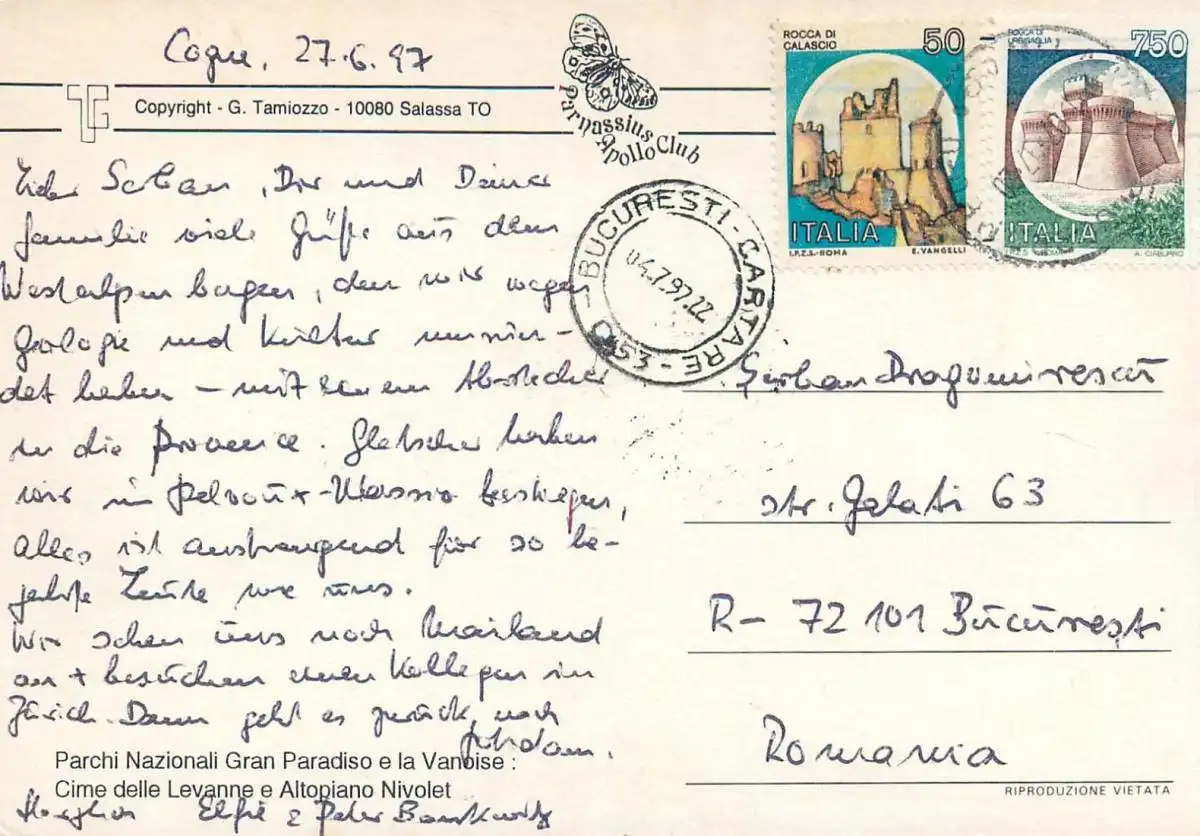 Cogne, 27.6.97
Copyright - G. Tamiozzo - 10080 Salassa TO
Parnassius Apollo Club
ROCCA DI CALASCIO 50
ITALIA
I.P.Z.S.-ROMA E. VANGELLI
ROCCA DI URBISAGLIA 750
ITALIA
A. CIABURRO
BUCURESTI - CARTARE
04.7.97.22
Lieber Serban, Dir und Deiner
Familie viele Grüße aus den
Westalpen, den wir wegen
Geologie und Kultur
det haben – mit einem Abstecher
in die Provence. Gletscher haben
wir im Pelvoux-Massiv bestiegen,
alles ist anstrengend für so be-
jahrte Leute wie uns.
Wir sehen uns noch Mailand
an + besuchen einen Kollegen in
Zürich. Dann geht es zurück nach
Potsdam.
Herzlich Elfie & Peter
Parchi Nazionali Gran Paradiso e la Vanoise :
Cime delle Levanne e Altopiano Nivolet
Şerban Dragomirescu
str. Galati 63
R- 72 101 Bucureşti
Romania
RIPRODUZIONE VIETATA